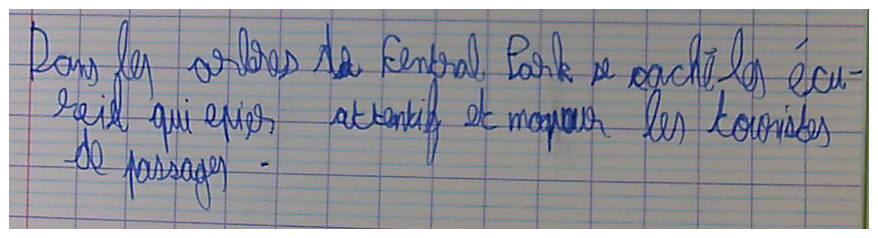 Dans les arbres de Central Park se caché les écu-
reil qui epier attentif et moqueur les touristes
de passages.